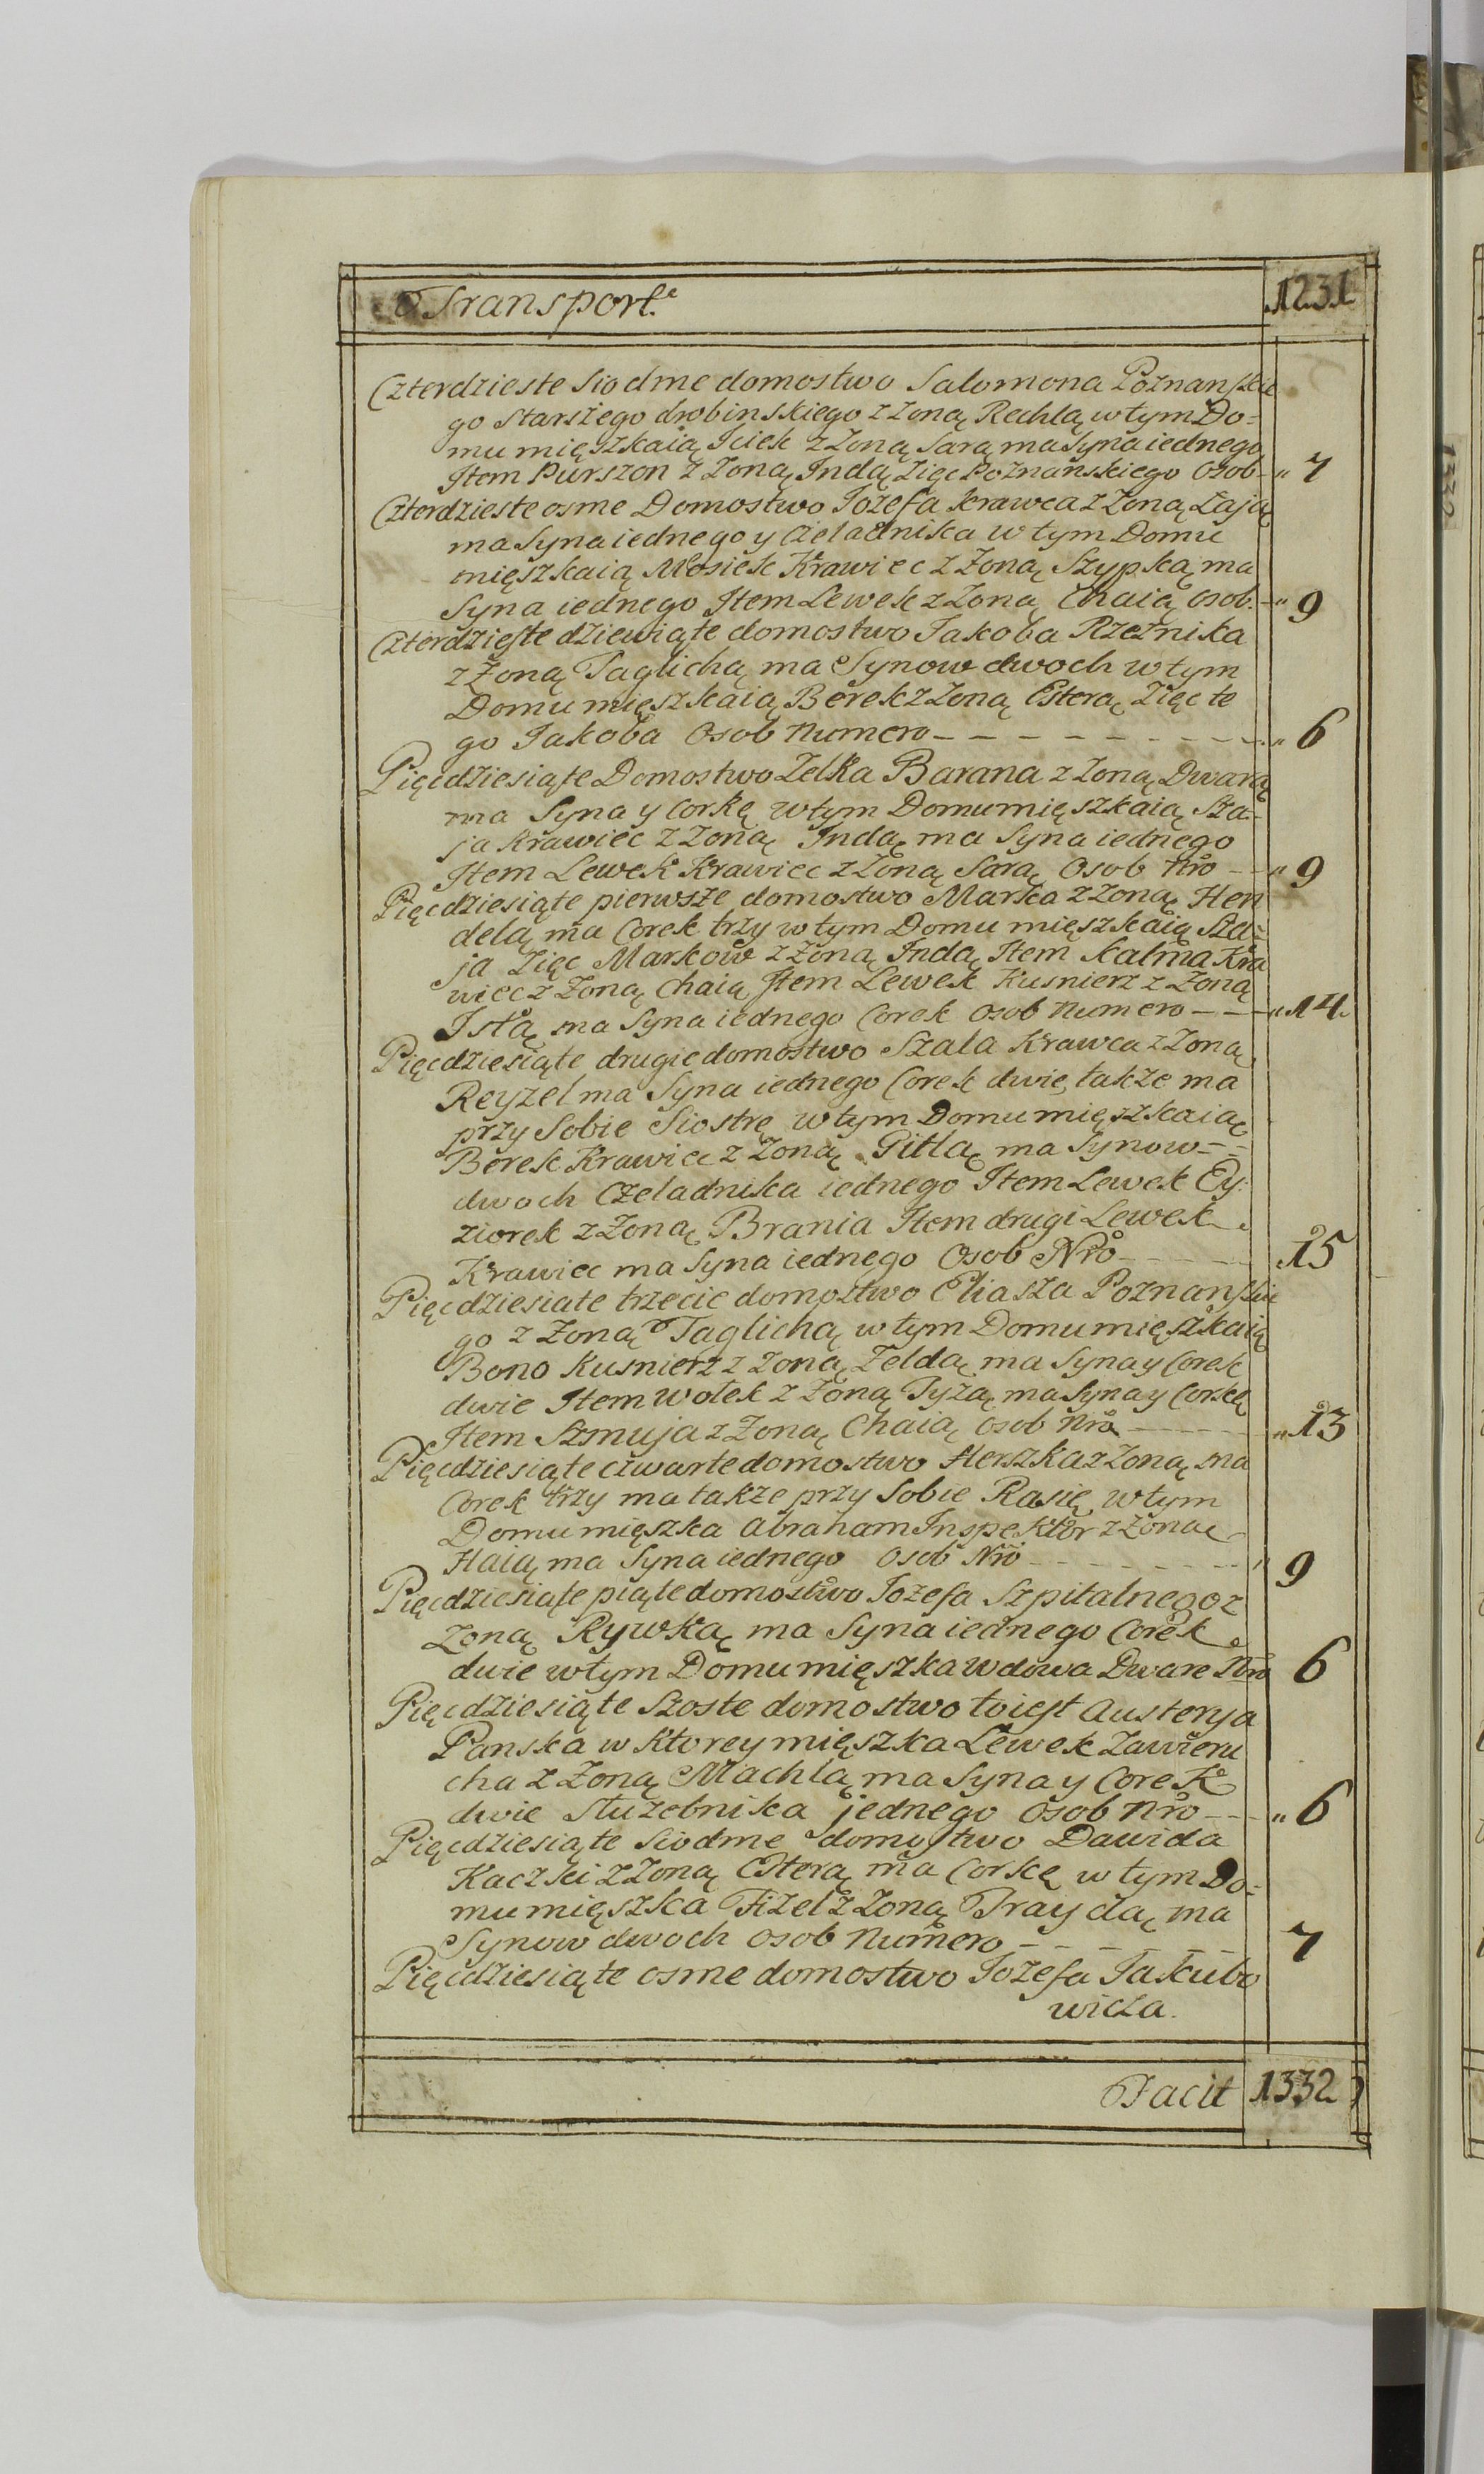 Transport. 1231
Czterdzieste Siodme domostwo Salomona Poznanskie
go Starszego drobinskiego z Zoną Rechlą w tym Do=
mu mięszkaią Iciek z Zoną Sarą ma Syna iednego
Item Purszon z Zoną Indą Zięc Poznanskiego Osob „ 7
Czterdzieste osme Domostwo Iozefa Krawca z Zoną Łają
ma Syna iednego y Czeladnika w tym Domu
mięszkaią Mosiek Krawiec z Zoną Szypką ma
Syna iednego Item Lewek z Zoną Chaią osob. „ 9
Czterdzieste dziewiąte domostwo Iakoba Rzeznika
z Zoną Taglichą ma Synow dwoch w tym
Domu mięszkaią Berek z Zoną Esterą Zięc te
go Iakoba Osob Numero „ 6
Pięcdziesiąte Domostwo Zelka Barana z Zoną Dwarą
ma Syna y Corkę w tym Domu mięszkaią Sza=
ja Krawiec z Zoną Indą ma Syna iednego
Item Lewek Krawiec z Zoną Sarą Osob Nro „ 9
Pięcdziesiąte pierwsze domostwo Marka z Zoną Hen
delą ma Corek trzy w tym Domu mięszkaią Sza=
ja Zięc Markow z Zoną Indą Item Kalma Kra
wiec z Zoną Chaią Item Lewek Kusnierz z Zoną
Istą ma Syna iednego Corek osob Numero „ 14.
Pięcdziesiąte drugie domostwo Szala Krawca z Zoną
Reyzel ma Syna iednego Corek dwie, także ma
przy Sobie Siostrę w tym Domu mięszkaią
Berek Krawiec z Zoną Gitlą ma Synow
dwoch Czeladnika iednego Item Lewek Ey:
ziorek z Zoną Brania Item drugi Lewek
Krawiec ma Syna iednego Osob Nro 15
Pięcdziesiate trzecie domostwo Eliasza Poznanskie
go z Zoną Taglichą w tym Domu mięszkaią
Bono Kusnierz z Zoną Zeldą ma Syna y Corek
dwie Item Wolek z Zoną Tyzą ma Syna y Corkę
Item Szmuja z Zoną Chaią osob Nro „ 13
Pięcdziesiąte czwarte domostwo Herszka z Zoną ma
Corek trzy ma takze przy Sobie Rasię w tym
Domu mięszka Abraham Inspektor z Zoną
Haią ma Syna iednego Osob Nro „ 9
Pięcdziesiąte piąte domostwo Iozefa Szpitalnego z
Zoną Rywką ma Syna iednego Corek
dwie w tym Domu mięszka wdowa Dware Nro 6
Pięcdziesiąte Szoste domostwo toiest Austerya
Panska w Ktorey mięszka Lewek Zawieru
cha z Zoną Machlą ma Syna y Corek
dwie Służebnika jednego Osob Nro „ 6
Pięcdziesiąte Siodme domostwo Dawida
Kaczki z Zoną Esterą ma Corkę w tym Do=
mu mięszka Fizel z Zoną Fraydą ma
Synow dwoch Osob Numero 7
Pięcdziesiąte osme domostwo Iozefa Iakubo
wicza.
Facit 1332